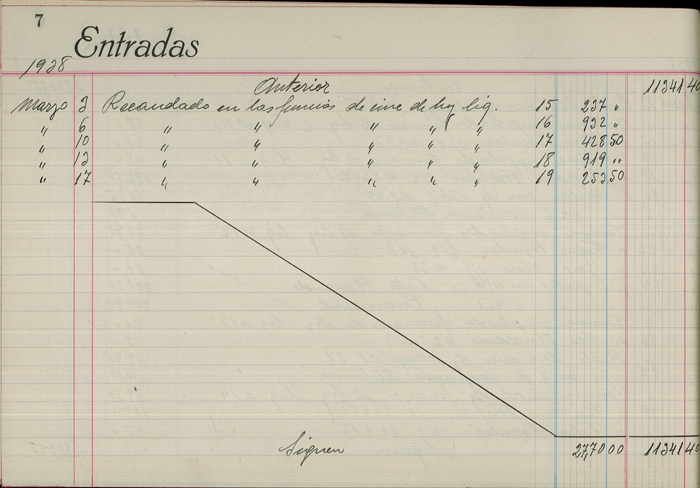 7
Entradas
1938
Anterior 11341 40
Marzo 3 Recaudado en las funcios de cine de hoy liq. 15 237 "
" 6 " " " " " 16 932 "
" 10 " " " " " 17 428 50
" 13 " " " " " 18 919 "
" 17 " " " " " 19 253 50
Siguen 2770 00 11341 40